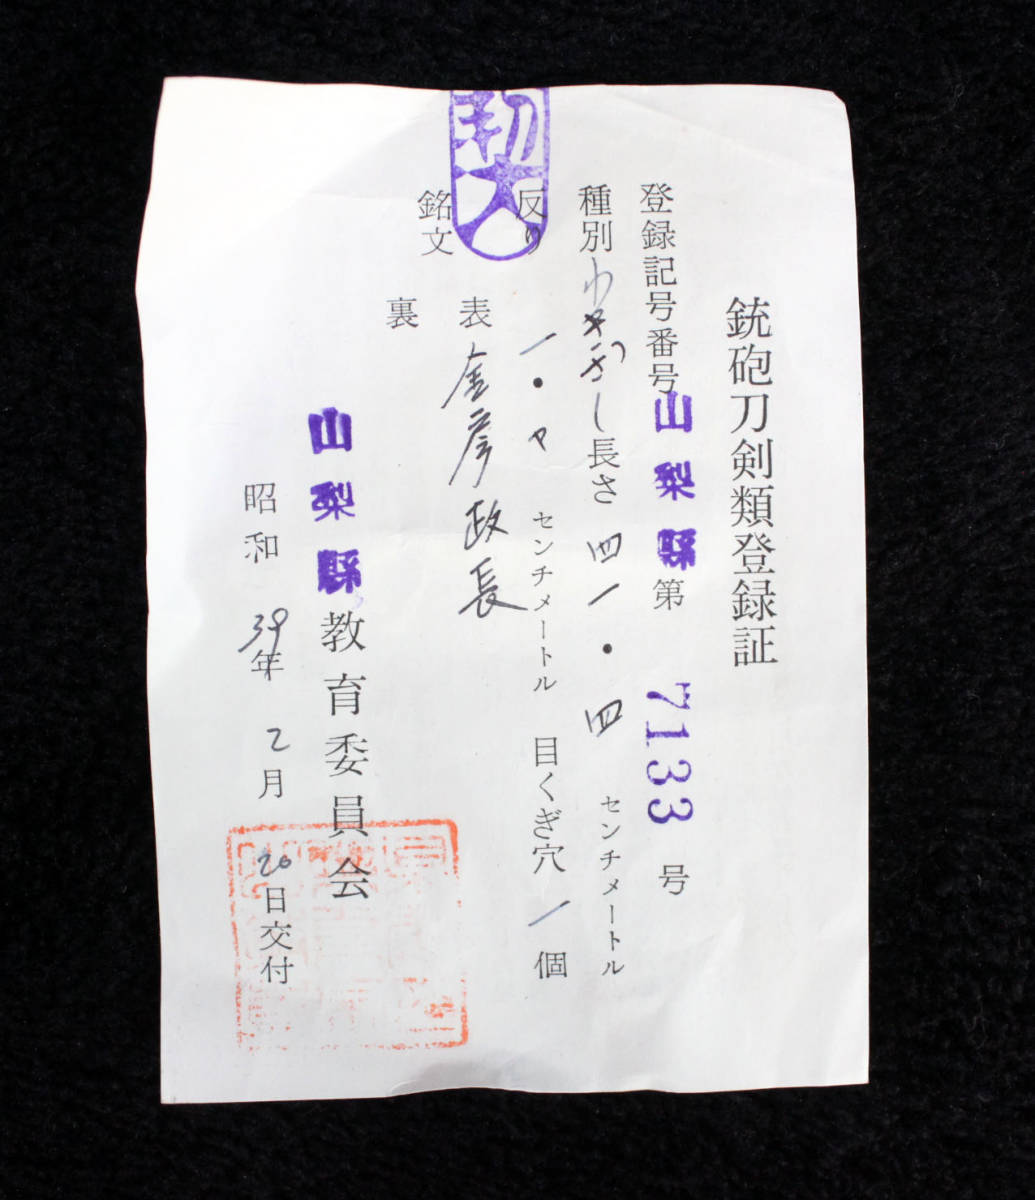 銃砲刀剣類登録証
登録記号番号 山梨縣 第 7133 号
種別 わきざし 長さ 四一・四 センチメートル
反り 一・ センチメートル 目くぎ穴 1 個
銘文 表 金房政長
裏
山梨縣教育委員会
昭和39年2月20日交付